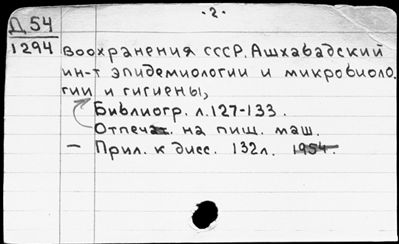 ·2·
Д 54
1294
воохранения СССР. Ашхабадский
ин-т эпидемиологии и микробиоло.
гии и гигиены,
Библиогр. л.127-133.
Отпечат. на пиш. маш.
— Прил. к дисс. 132л. 1954.